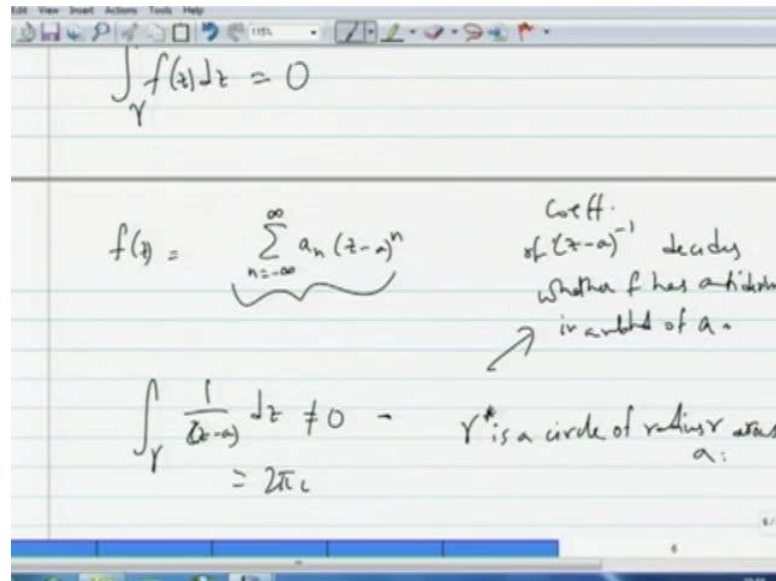 Edit View Insert Actions Tools Help
115%
∫_γ f(z) dz = 0
f(z) = ∑_{n=-∞}^{∞} a_n (z-a)^n
Coeff.
of (z-a)^{-1} decides
whether f has antideriv
in a nbhd of a.
∫_γ 1/(z-a) dz ≠ 0 -
= 2πi
γ* is a circle of radius r
a.
6